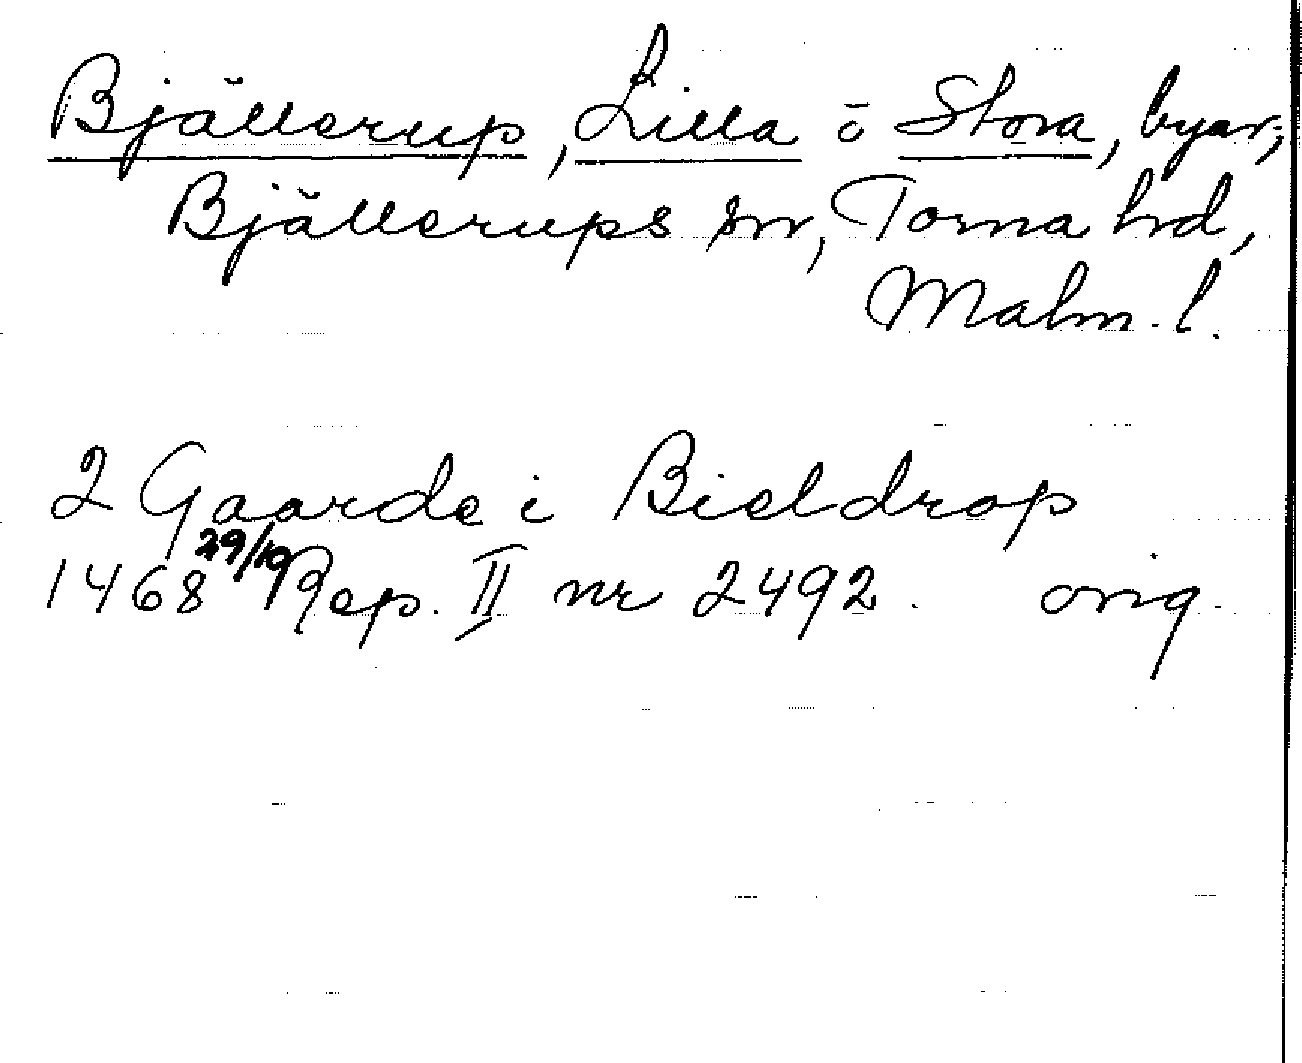 Bjällerup, Lilla o Stora, byar;
Bjällerups sn, Torna hrd,
Malm. l.
2 Gaarde i Bieldrop
1468 29/10 Rep. II nr 2492. orig.